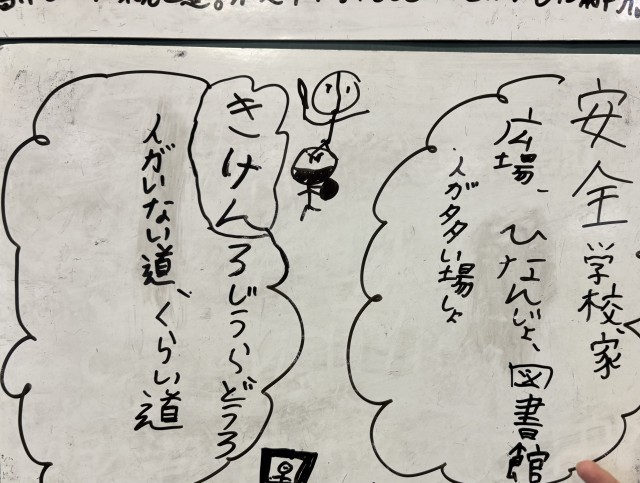 安全 学校 家
広場、ひなんじょ、図書館
人が多い場しょ
きけん ろじうら どうろ
人がいない道、くらい道